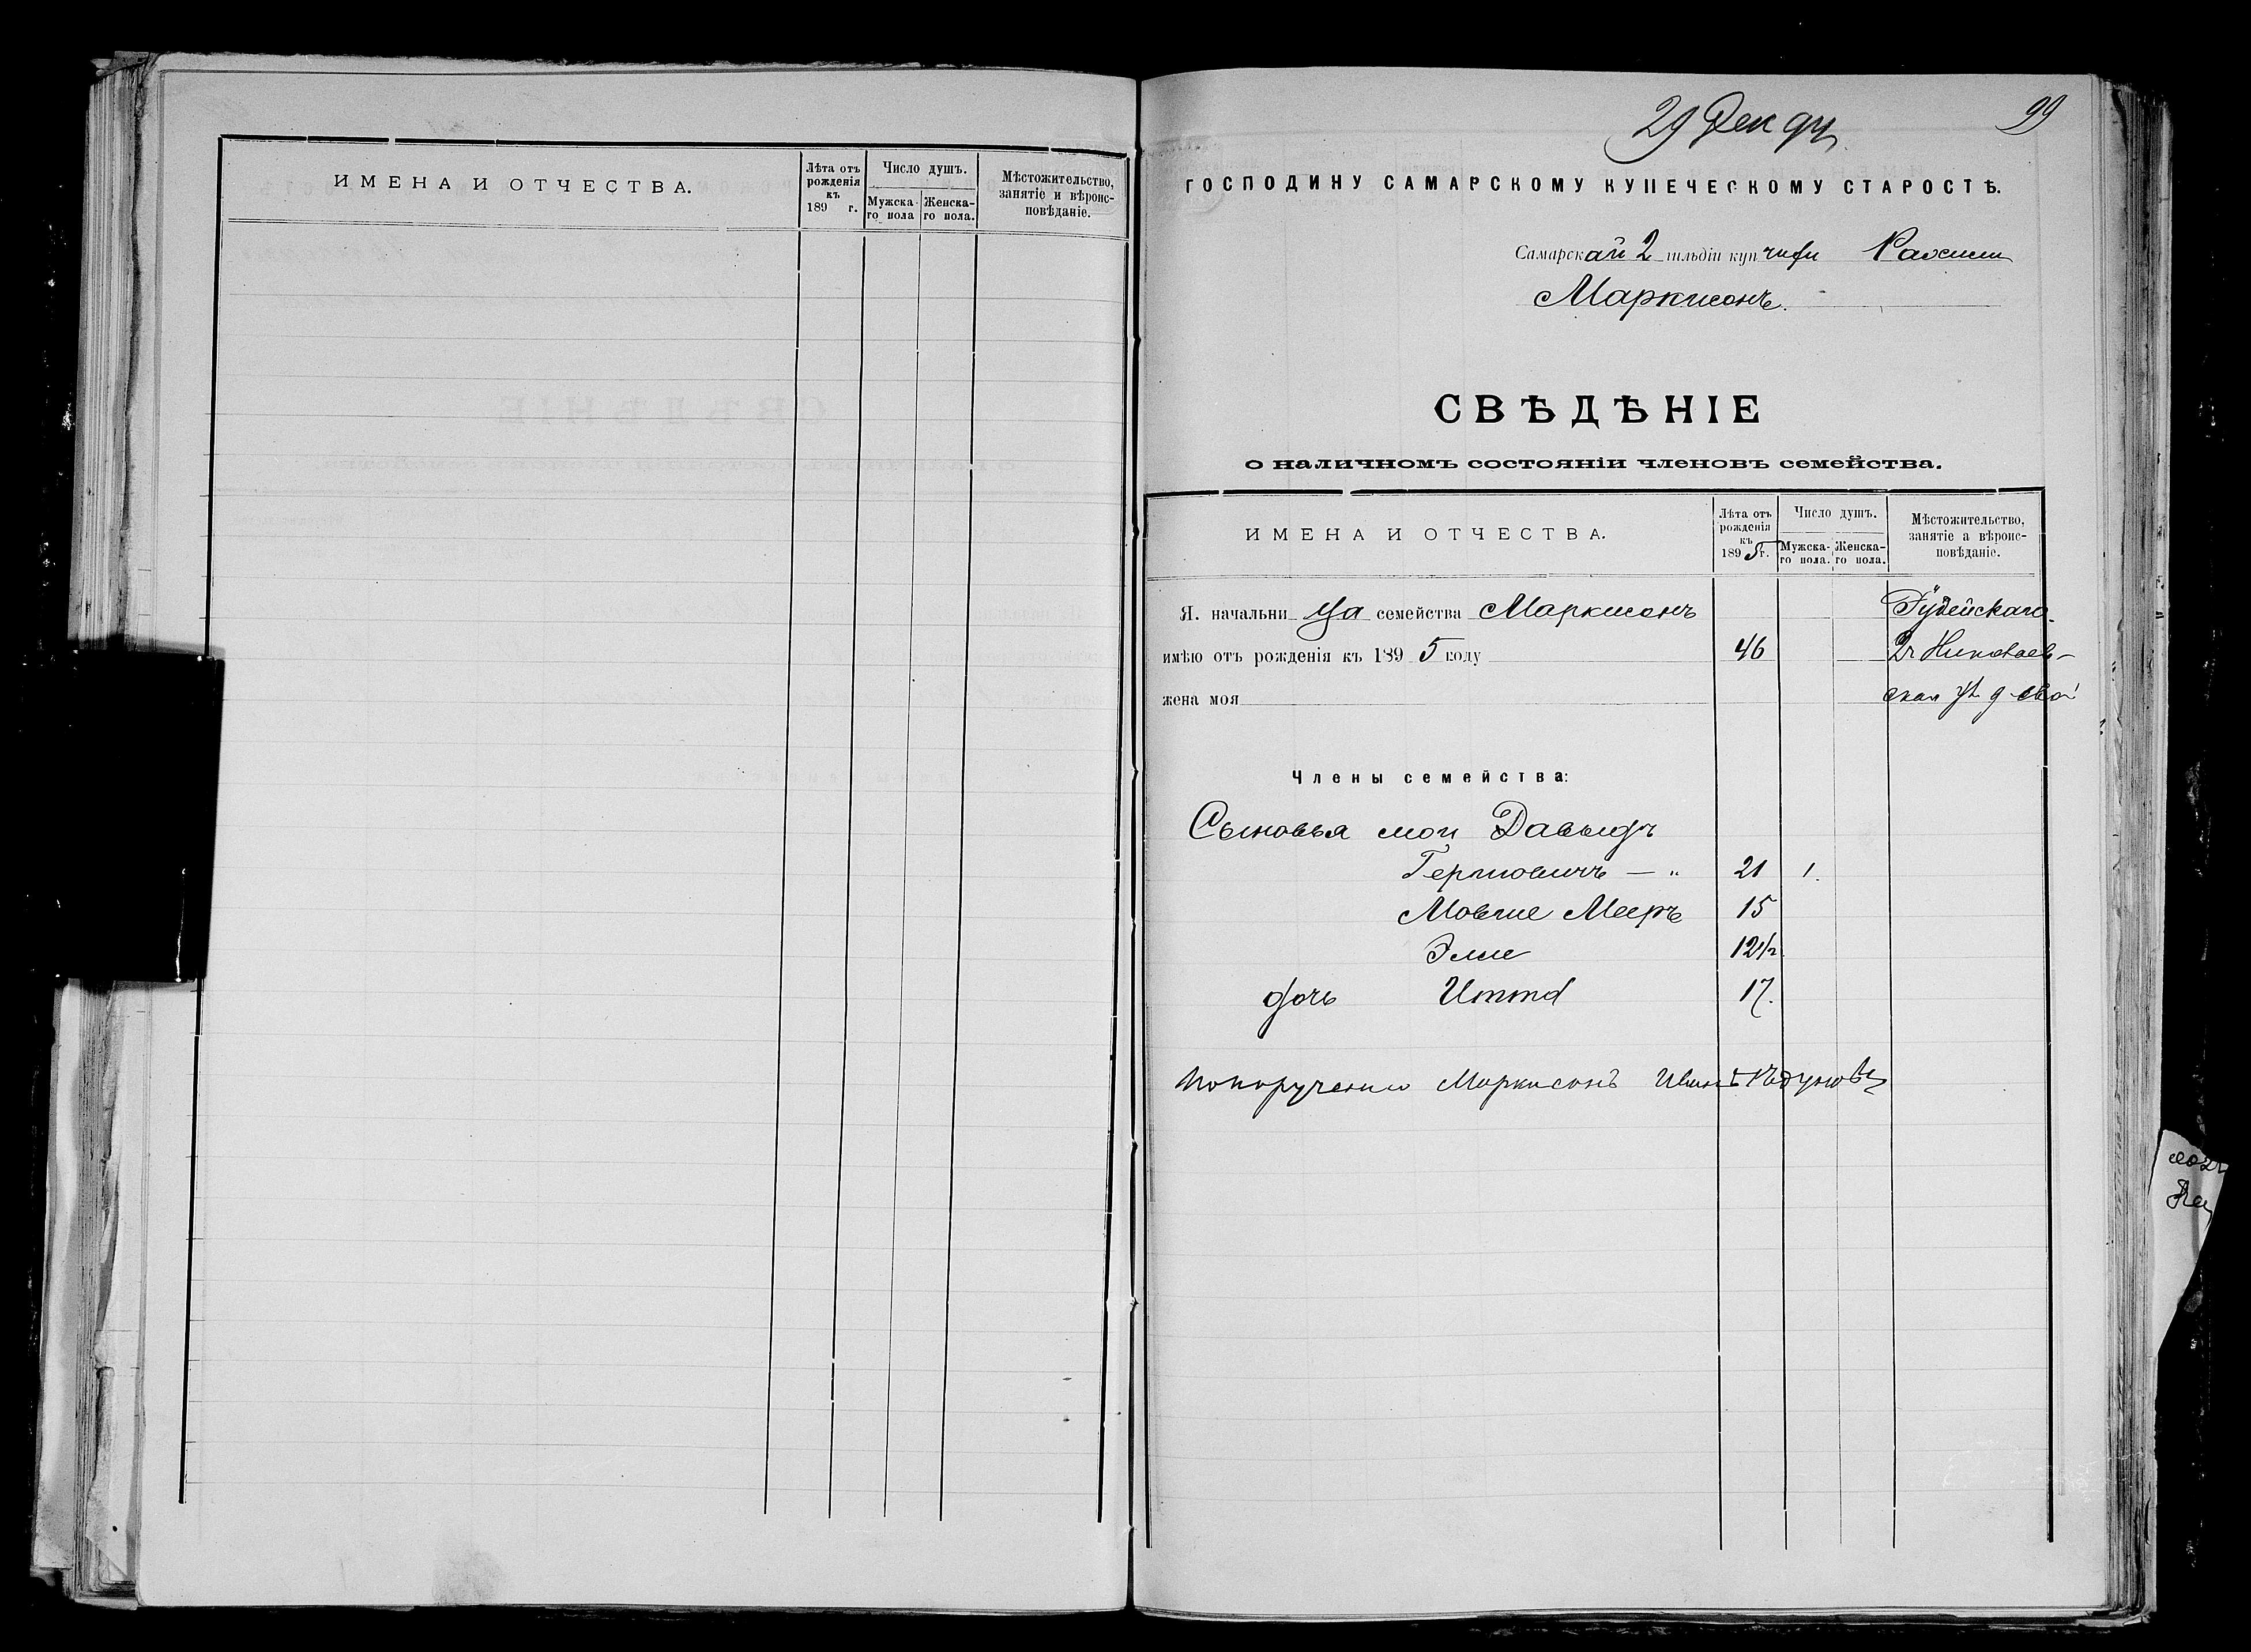 ИМЕНА И ОТЧЕСТВА.
Лѣта отъ рожденія къ 189 г.
Число душъ.
Мужска-го пола
Женска-го пола.
Мѣстожительство, занятіе и вѣроис-повѣданіе.
29 Дек 94
99
ГОСПОДИНУ САМАРСКОМУ КУПЕЧЕСКОМУ СТАРОСТѢ.
Самарской 2 гильдіи куп
Маркисонъ.
СВѢДѢНІЕ
о наличномъ состояніи членовъ семейства.
ИМЕНА И ОТЧЕСТВА.
Лѣта отъ рожденія къ 1895 г.
Число душъ.
Мужска-го пола.
Женска-го пола.
Мѣстожительство, занятіе а вѣроис-повѣданіе.
Я. начальница семейства Маркисонъ Іудейскаго
имѣю отъ рожденія къ 1895 году 46 2 ч Николаев-
жена моя ская ул д
Члены семейства:
Сыновья мои Давыдъ
Герцовичъ — „ 21 1.
Мовше Мееръ 15
Элие 12 1/2
дочь Итта 17.
По порученію Маркисонъ Иван